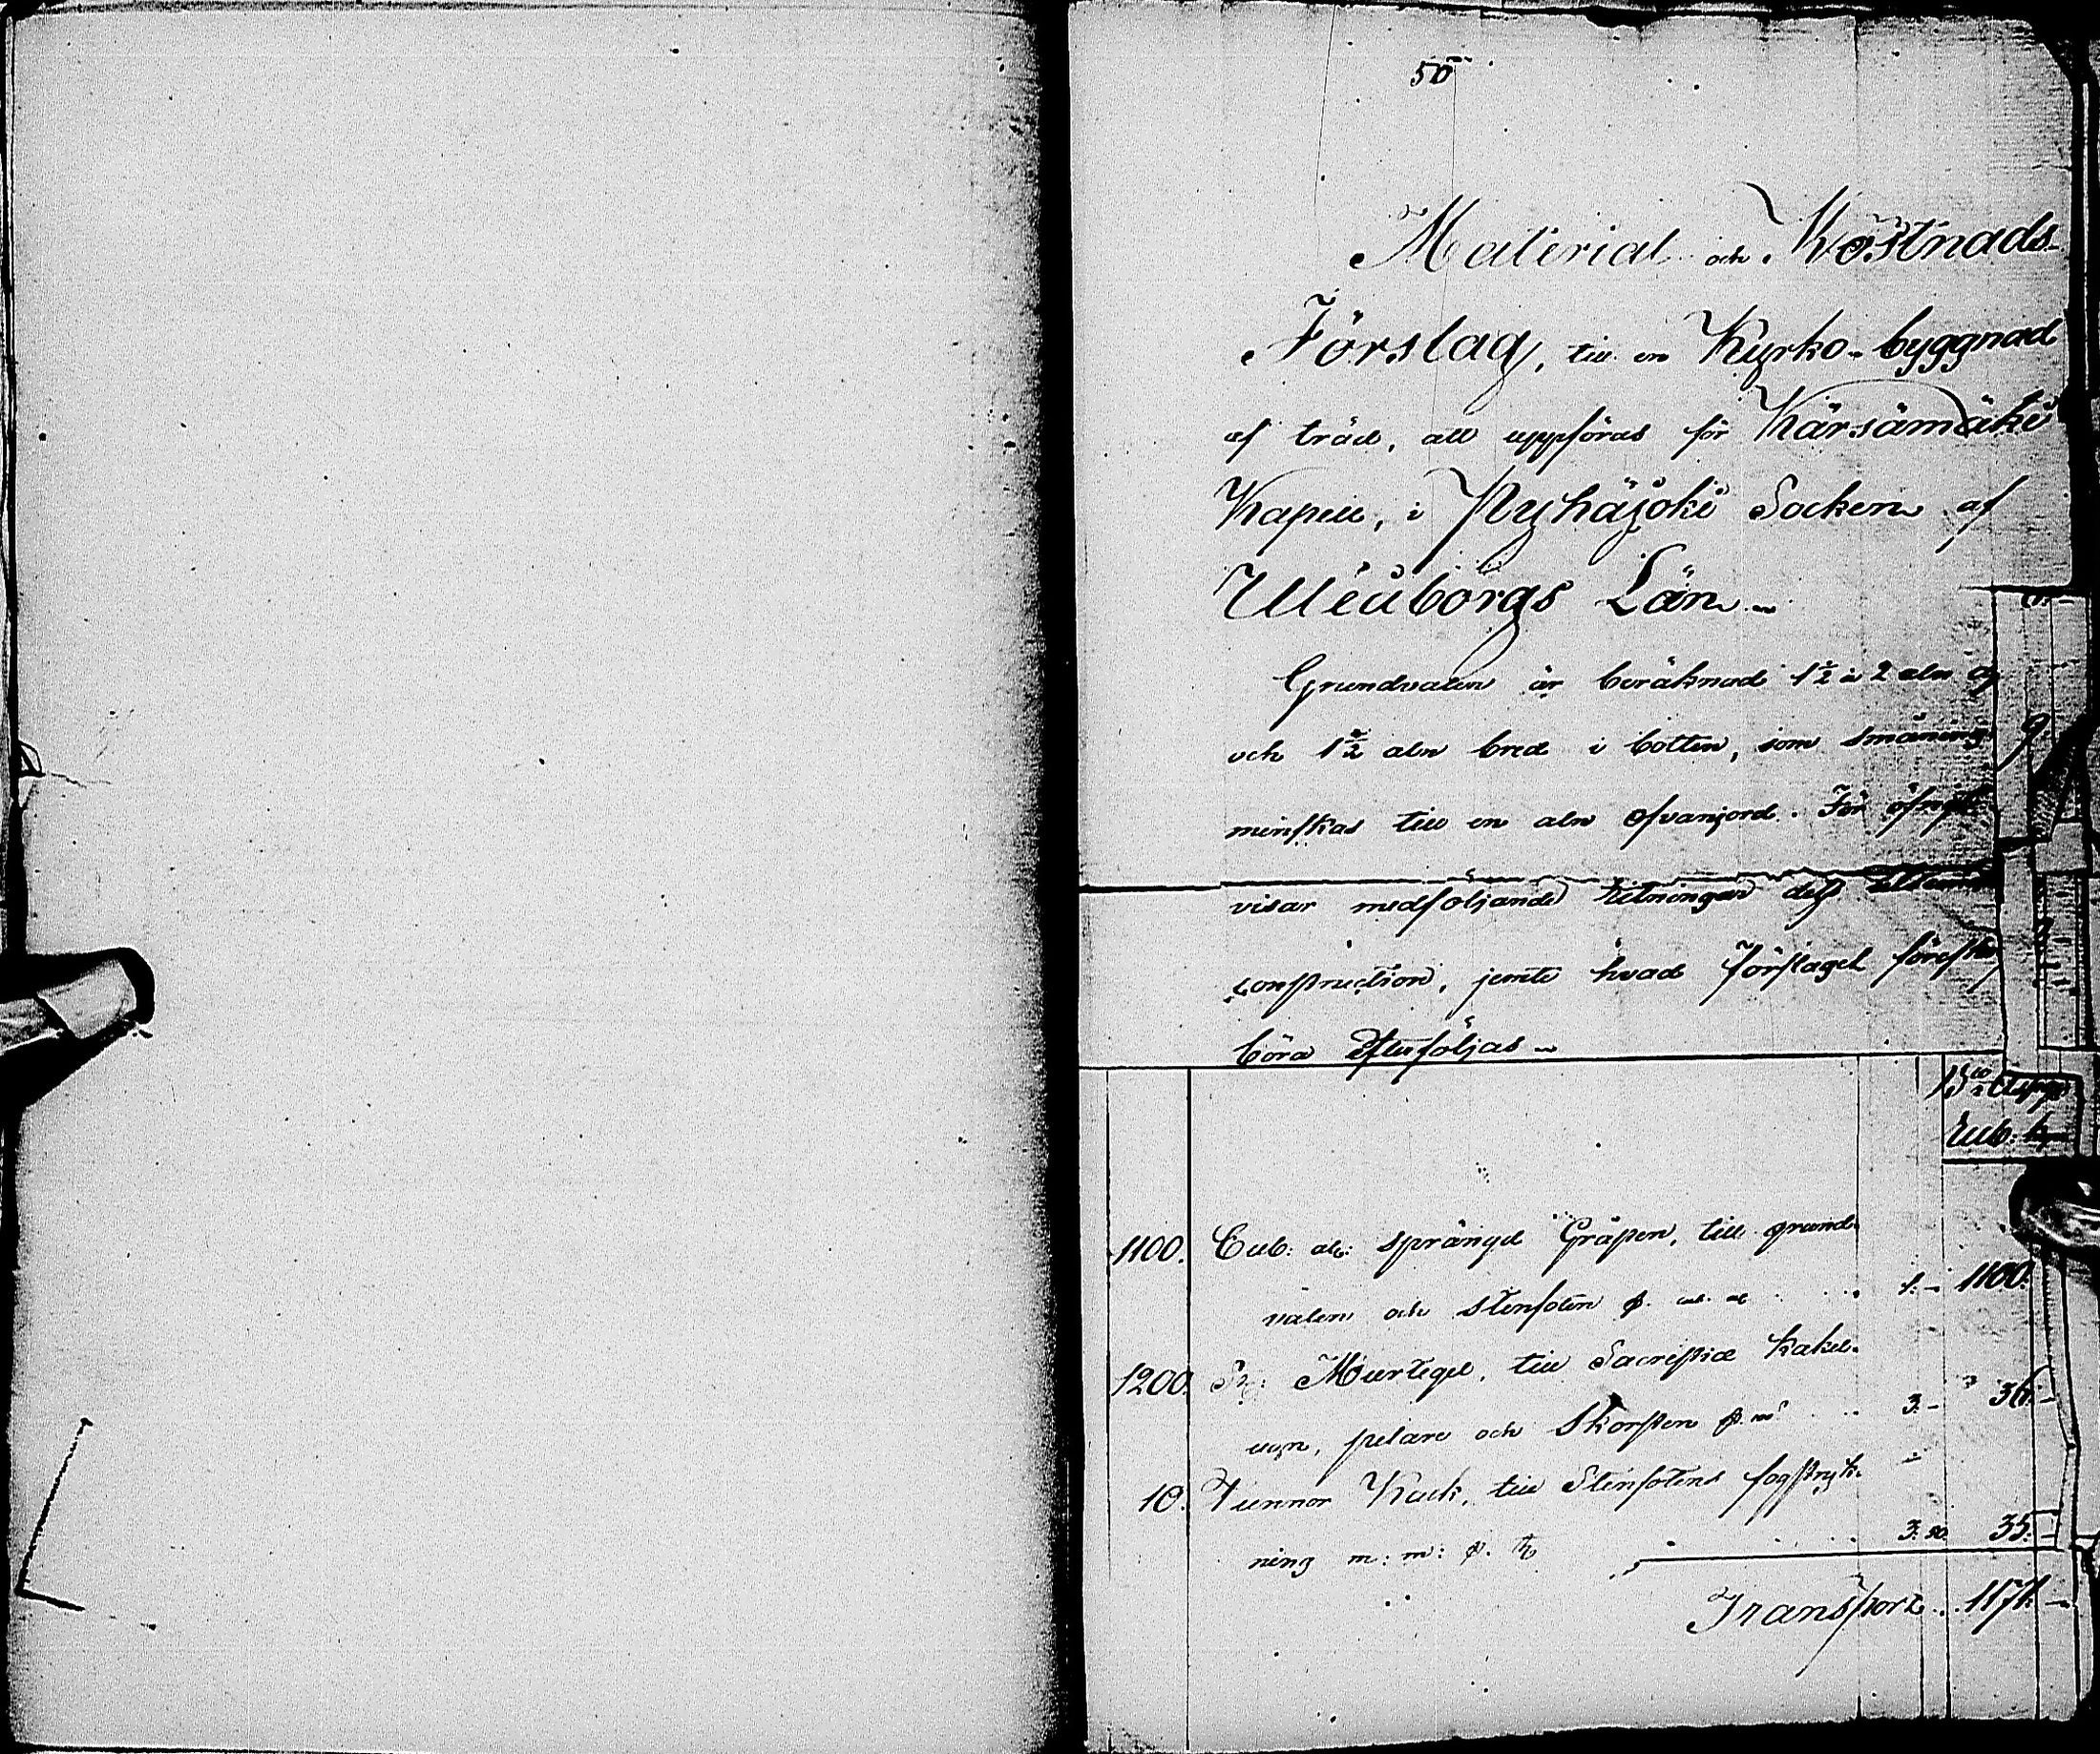 50
Material och Kostnads-
Förslag, till en Kyrko-byggnad
af träd, att uppföras för Kärsämäki
Kapell, i Pyhäjoki Socken af
Uleåborgs Län
Grundvalen är beräknad 1½ à 2 aln
och 1½ aln bred i botten, som småning
minskas till en aln ofvanjord. För öfrigt
visar medföljande ritningar dess
construction, jemte hvad Förslaget
böra efterföljas
Rub:
1100. Cub: aln: sprängd Gråsten, till grund-
valen och stenfoten p. cub. al 1.- 1100.
1200. St: Murtegel, till Sacristiæ kakel-
ugn, pelare och Skorsten p. m 3.- 36.-
10. Tunnor Kalk, till Stenfotens fogstryk-
ning m: m: p. 3. 50. 35.-
Transport 1171.-